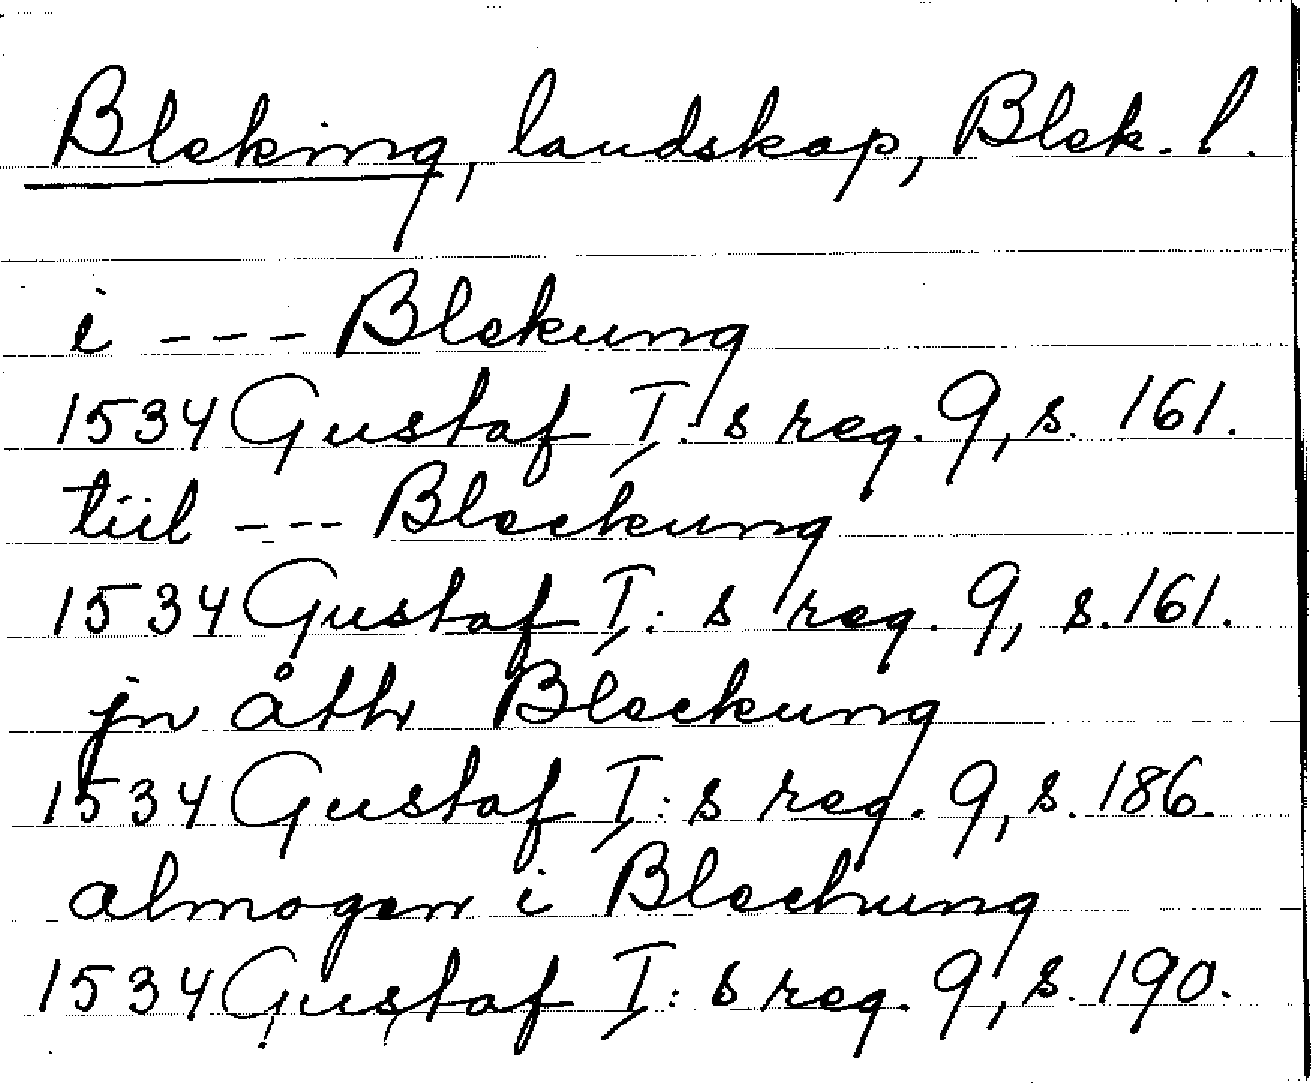 Bleking, landskap, Blek. l.
i --- Blekung
1534 Gustaf I:s reg. 9, s. 161.
tiil --- Bleckung
1534 Gustaf I:s reg. 9, s. 161.
jn åth Bleckung
1534 Gustaf I:s reg. 9, s. 186.
almogen i Blechung
1534 Gustaf I:s reg. 9, s. 190.